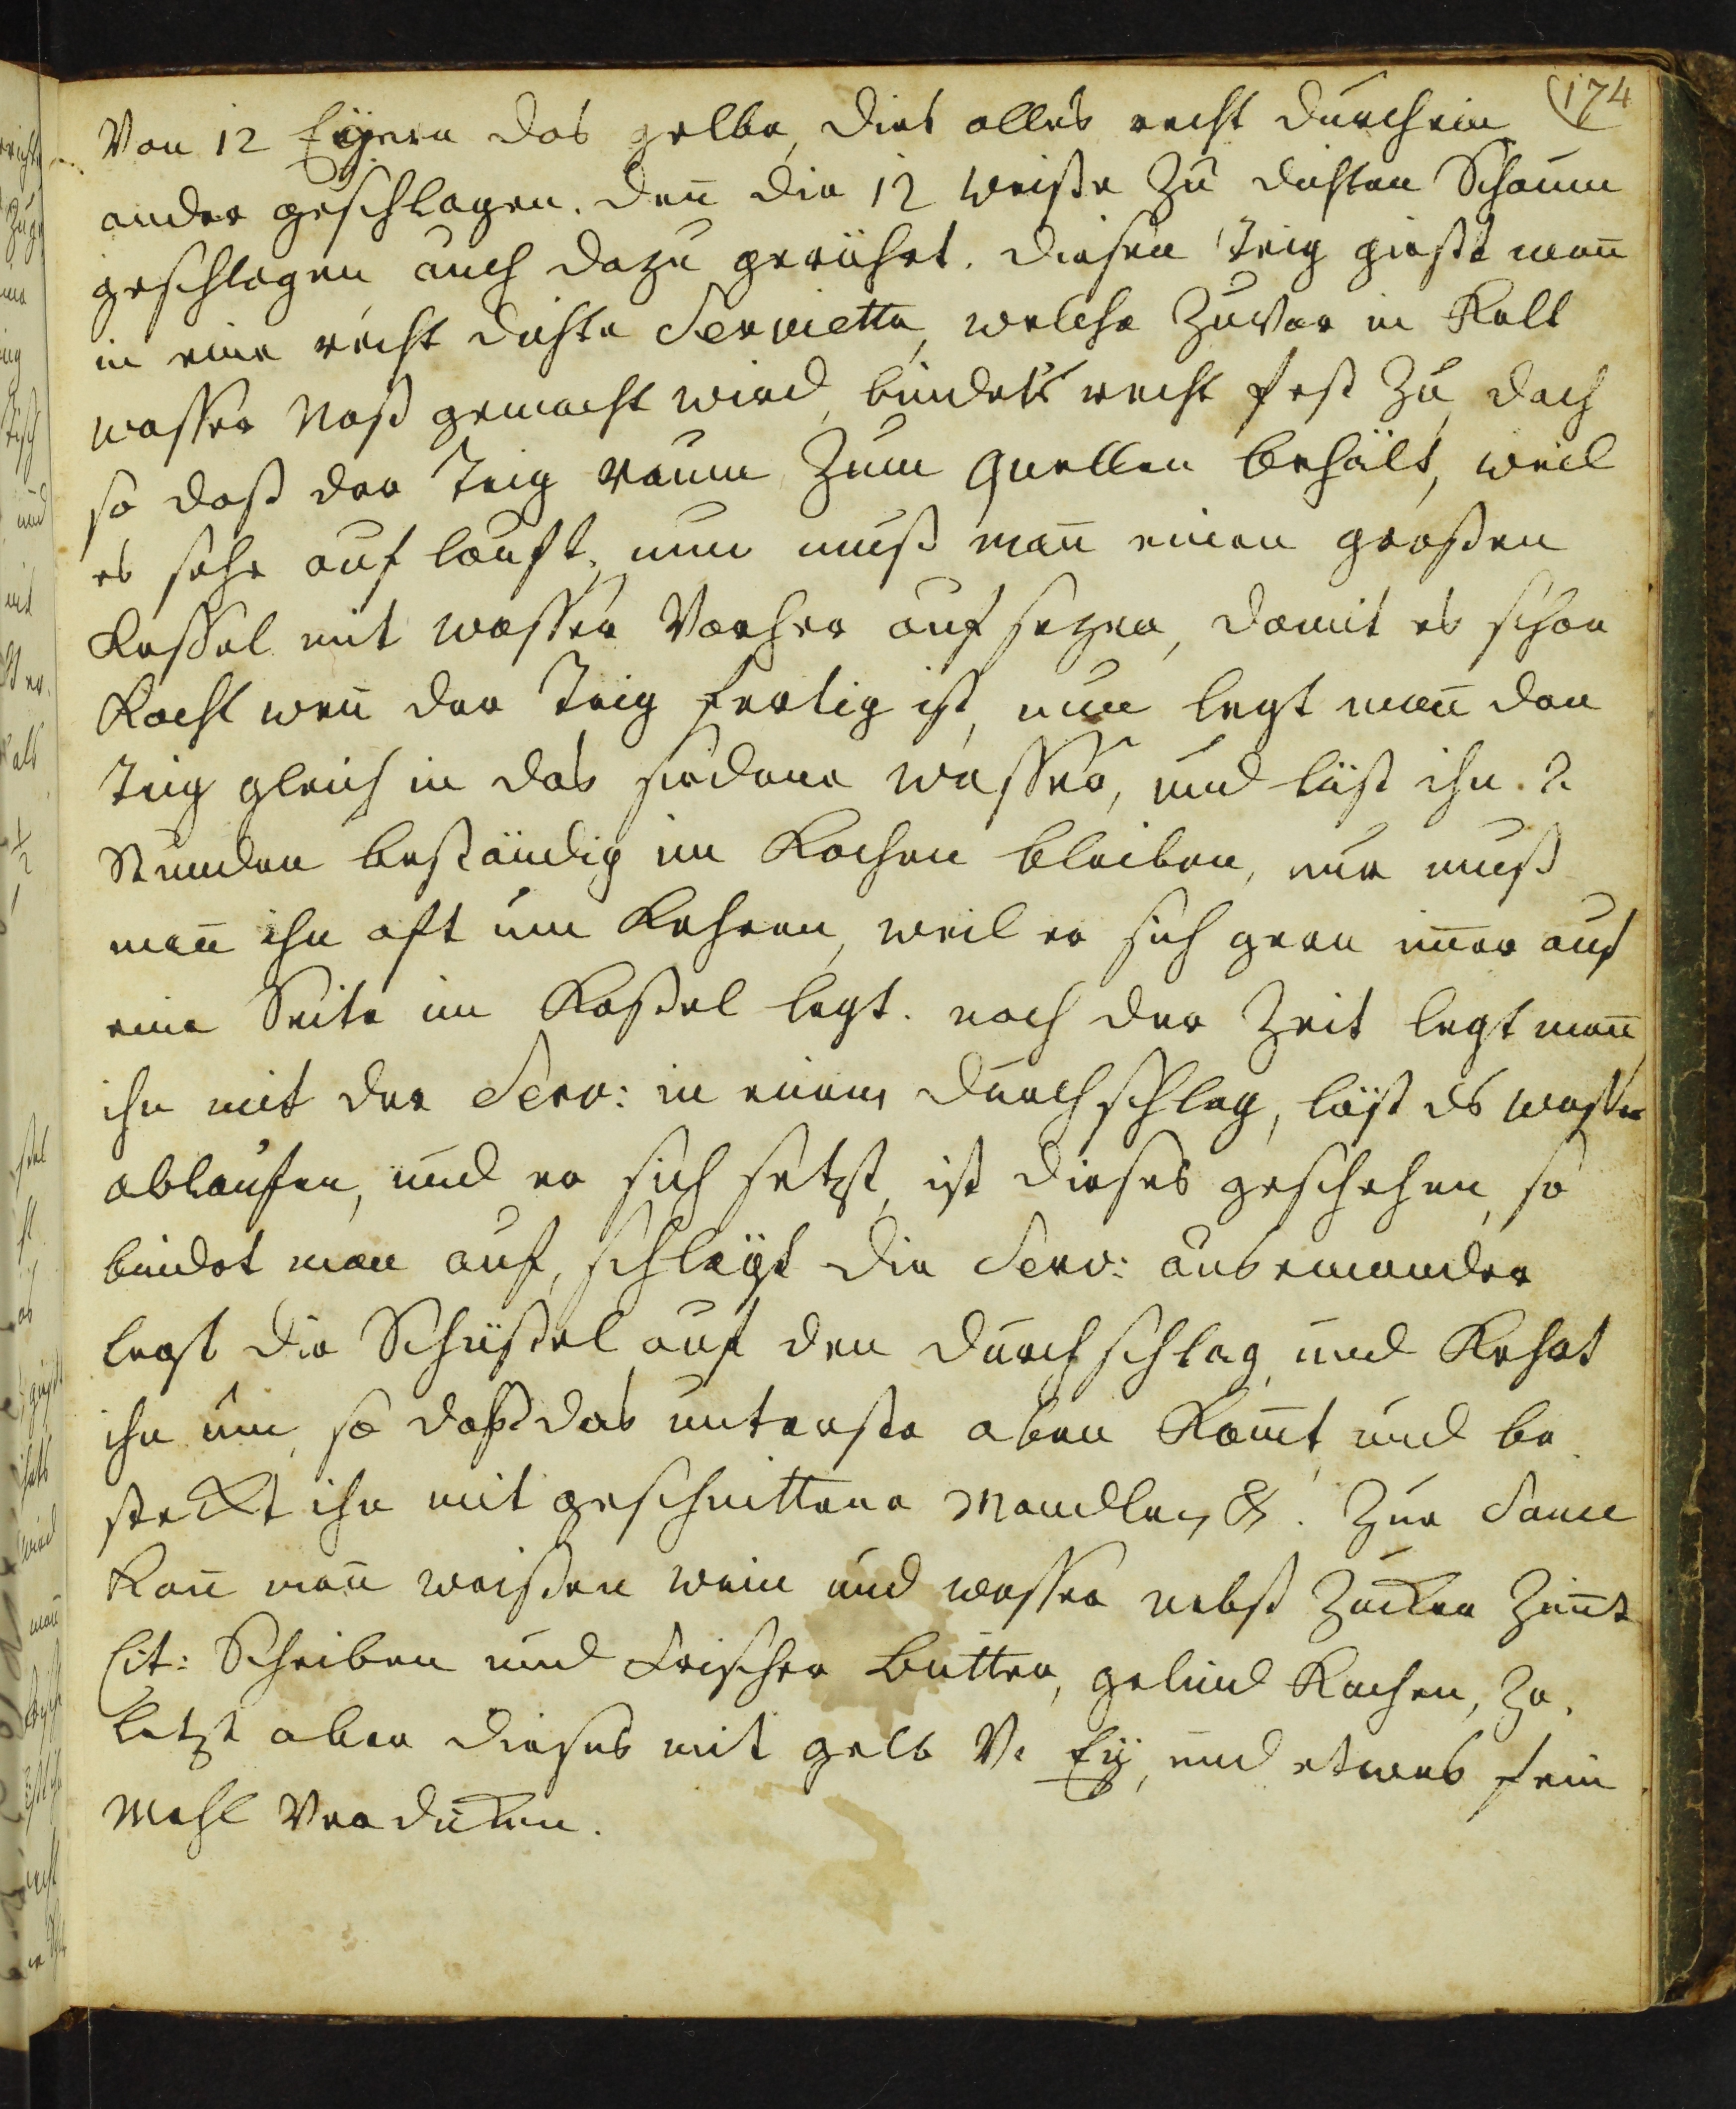 174
Von 12 Eÿern das gelbe, dies alles recht durchein
ander geschlagen. den̄ die 12 weiße zu dichten Schaum
geschlagen auch dazu gerührt. diesen Teig gießt man̄
in eine recht dichte Serviette, welche zuvor in Kalt
wasser Naß gemacht wird, bindets recht fest zu, doch
so daß der Teig raum zum Quellen behält, weil
es sehr auf lauft, nun muß man̄ einen großen
Kessel mit wasser Vorher auf sezen, damit es schon
Kocht wen̄ der Teig fertig ist, nun legt man̄ den
Teig gleich in das siedene wasser, und läst ihn 2
Stunden beständig im Kochen bleiben, nur muß
man̄ ihn oft um Kehren, weil er sich gern im̄er auf
eine Seite im Keßel legt. nach der Zeit legt man̄
ihn mit der Serv: in einen durchschlag, läst ds wasser
ablaufen, und er sich setzt, ist dieses geschehen, so
bindet man auf, schlägt die Serv: auseinander
legt die Schüßel auf den durchschlag und Kehrt
ihn um, so daß das unterste oben Kom̄t und be
steckt ihn mit geschnittene Mandlen &. Zur Sauce
Kan̄ man̄ weißen wein und wasser nebst Zucker Zim̄t
Cit: Scheiben und frischer Butter, gelind Kochen, zu
letzt aber dieses mit gelb V. Eÿ, und etwas fein
Mehl Verdicken.